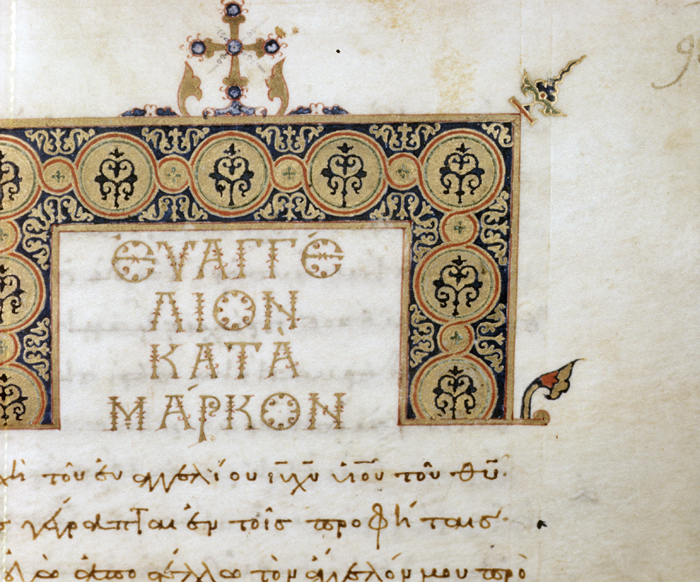 ΕΥΑΓΓΕ
ΛΙΟΝ
ΚΑΤΑ
ΜΑΡΚΟΝ
τοῦ εὐαγγελίου ιυ χυ υἱοῦ τοῦ θυ·
γέγραπται ἐν τοῖς προφήταις·
ἀποστέλλω τὸν ἄγγελόν μου πρὸ